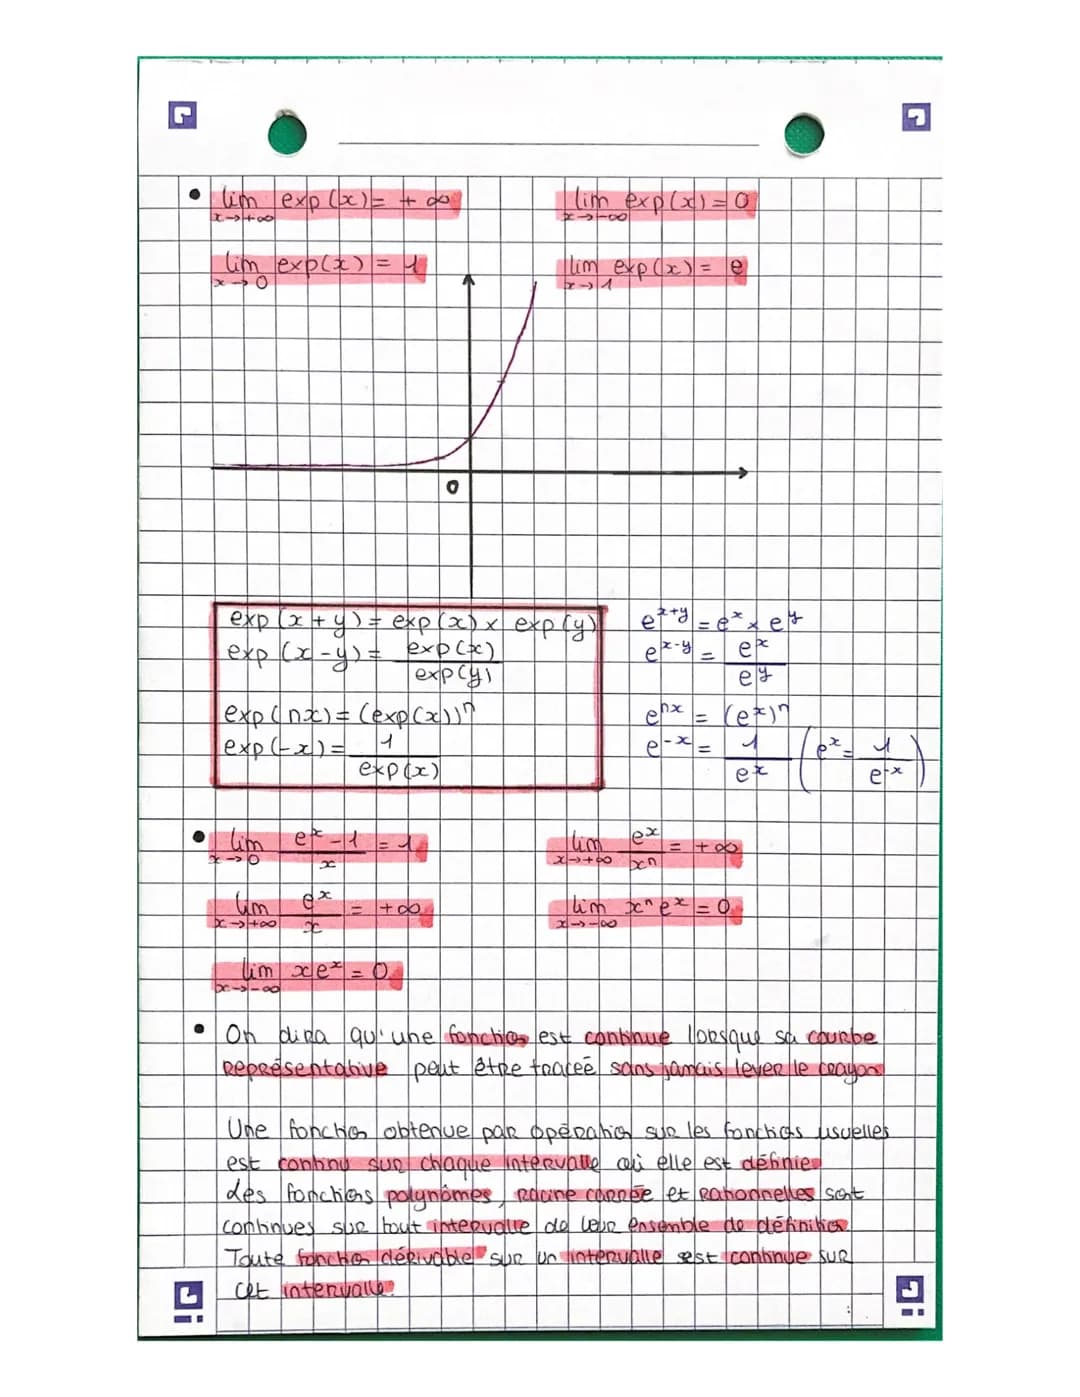 • lim x→+∞ exp(x) = +∞   lim x→-∞ exp(x) = 0
lim x→0 exp(x) = 1   lim x→1 exp(x) = e
0
exp(x+y) = exp(x) × exp(y)   e^{x+y} = e^x × e^y
exp(x-y) = exp(x)/exp(y)   e^{x-y} = e^x/e^y
exp(nx) = (exp(x))^n   e^{nx} = (e^x)^n
exp(-x) = 1/exp(x)   e^{-x} = 1/e^x (e^x = 1/e^{-x})
• lim x→0 (e^x - 1)/x = 1   lim x→+∞ e^x/x^n = +∞
lim x→+∞ e^x/x = +∞   lim x→-∞ x^n e^x = 0
lim x→-∞ xe^x = 0
• On dira qu'une fonction est continue lorsque sa courbe
représentative peut être tracée sans jamais lever le crayon
Une fonction obtenue par opération sur les fonctions usuelles
est continu sur chaque intervalle où elle est définie
Les fonctions polynômes, racine carrée et rationnelles sont
continues sur tout intervalle de leur ensemble de définition
Toute fonction dérivable sur un intervalle est continue sur
cet intervalle.